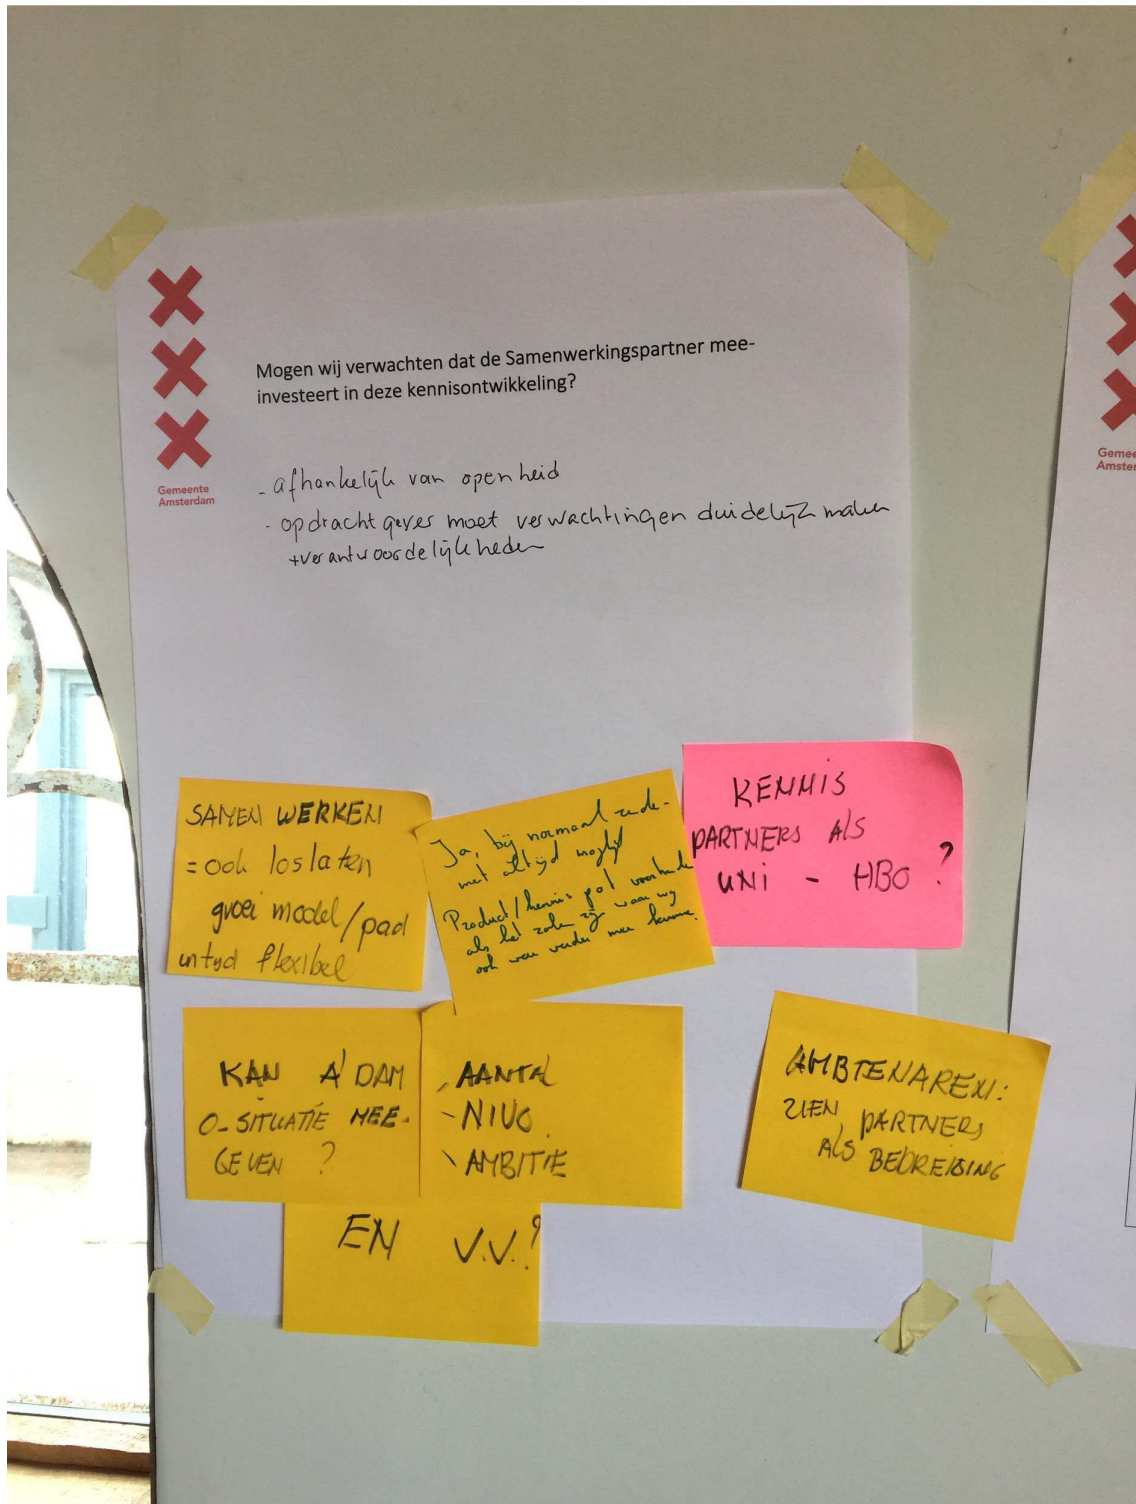 Gemeente
Amsterdam
Mogen wij verwachten dat de Samenwerkingspartner mee-
investeert in deze kennisontwikkeling?
- afhankelijk van openheid
- opdrachtgever moet verwachtingen duidelijk maken
+verantwoordelijkheden
SAMEN WERKEN
= ook loslaten
groei model/pad
in tijd flexibel
Ja, bij normaal
niet altijd mogelijk
Product/kennis
als het zaken zijn waar wij
ook weer verder mee kunnen.
KENNIS
PARTNERS ALS
UNI - HBO ?
KAN A'DAM
0-SITUATIE MEE-
GEVEN ?
- AANTAL
- NIVO
- AMBITIE
EN V.V.?
AMBTENAREN:
ZIEN PARTNERS
ALS BEDREIGING
Gemee
Amster